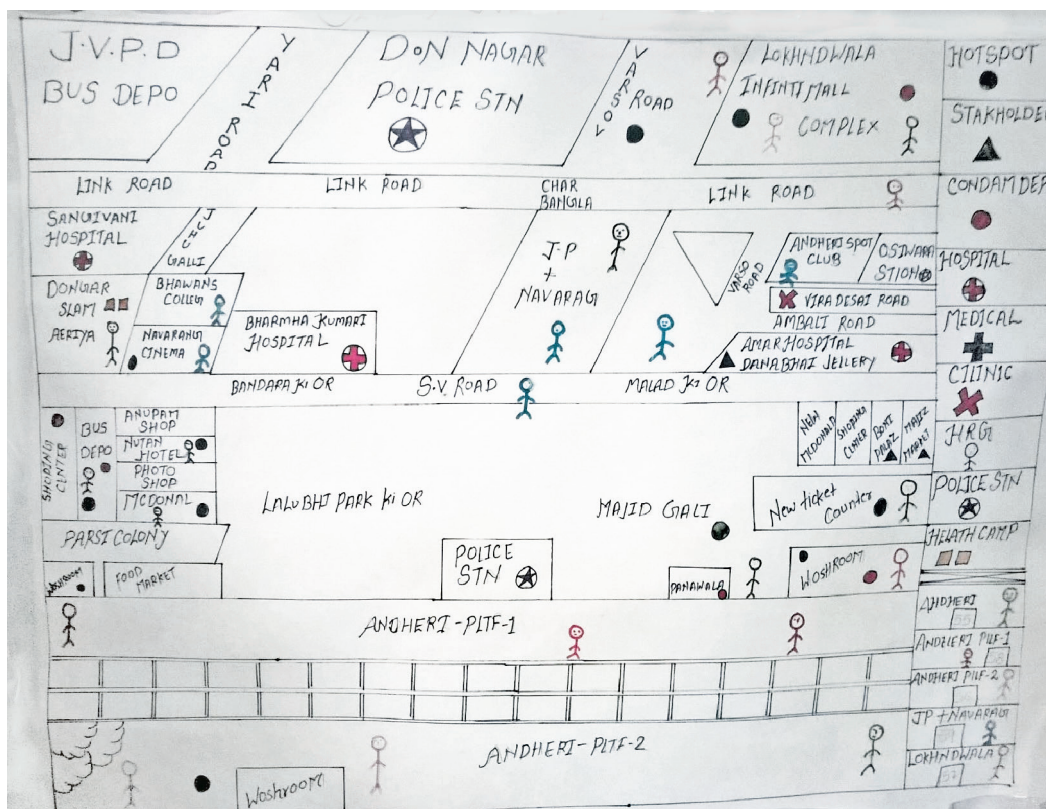 J.V.P.D
BUS DEPO
YARI ROAD
DON NAGAR
POLICE STN
VARSOV ROAD
LOKHNDWALA
INFINTI MALL
COMPLEX
LINK ROAD
LINK ROAD
CHAR
BANGLA
LINK ROAD
SANGIVANI
HOSPITAL
JUHU
GALLI
DONGAR
SLAM
AERIYA
BHAWANS
COLLEG
NAVARANG
CINEMA
BHARMHA KUMARI
HOSPITAL
J.P
+
NAVARAG
VARSO
ROAD
ANDHERI SPOT
CLUB
OSIWARA
STION
VIRA DESAI ROAD
AMBALI ROAD
AMAR HOSPITAL
DANABHAI JELLERY
BANDARA KI OR
S.V. ROAD
MALAD KI OR
SHOPING
CENTER
BUS
DEPO
ANUPAM
SHOP
NUTAN
HOTEL
PHOTO
SHOP
MCDONAL
PARSI COLONY
WOSHROOM
FOOD
MARKET
LALUBHI PARK KI OR
POLICE
STN
MAJID GALI
NEW
MCDONALD
SHOPING
CENTER
MAJIZ
MARKET
New ticket
Counter
PANAWALA
WOSHROOM
ANDHERI-PLTF-1
ANDHERI-PLTF-2
Woshroom
HOTSPOT
STAKHOLDE
CONDAM DEP
HOSPITAL
MEDICAL
CILINIC
HRG
POLICE STN
HELATH CAMP
ANDHERI
ANDHERI PLTF-1
ANDHERI PLTF-2
JP + NAVARAG
LOKHNDWALA